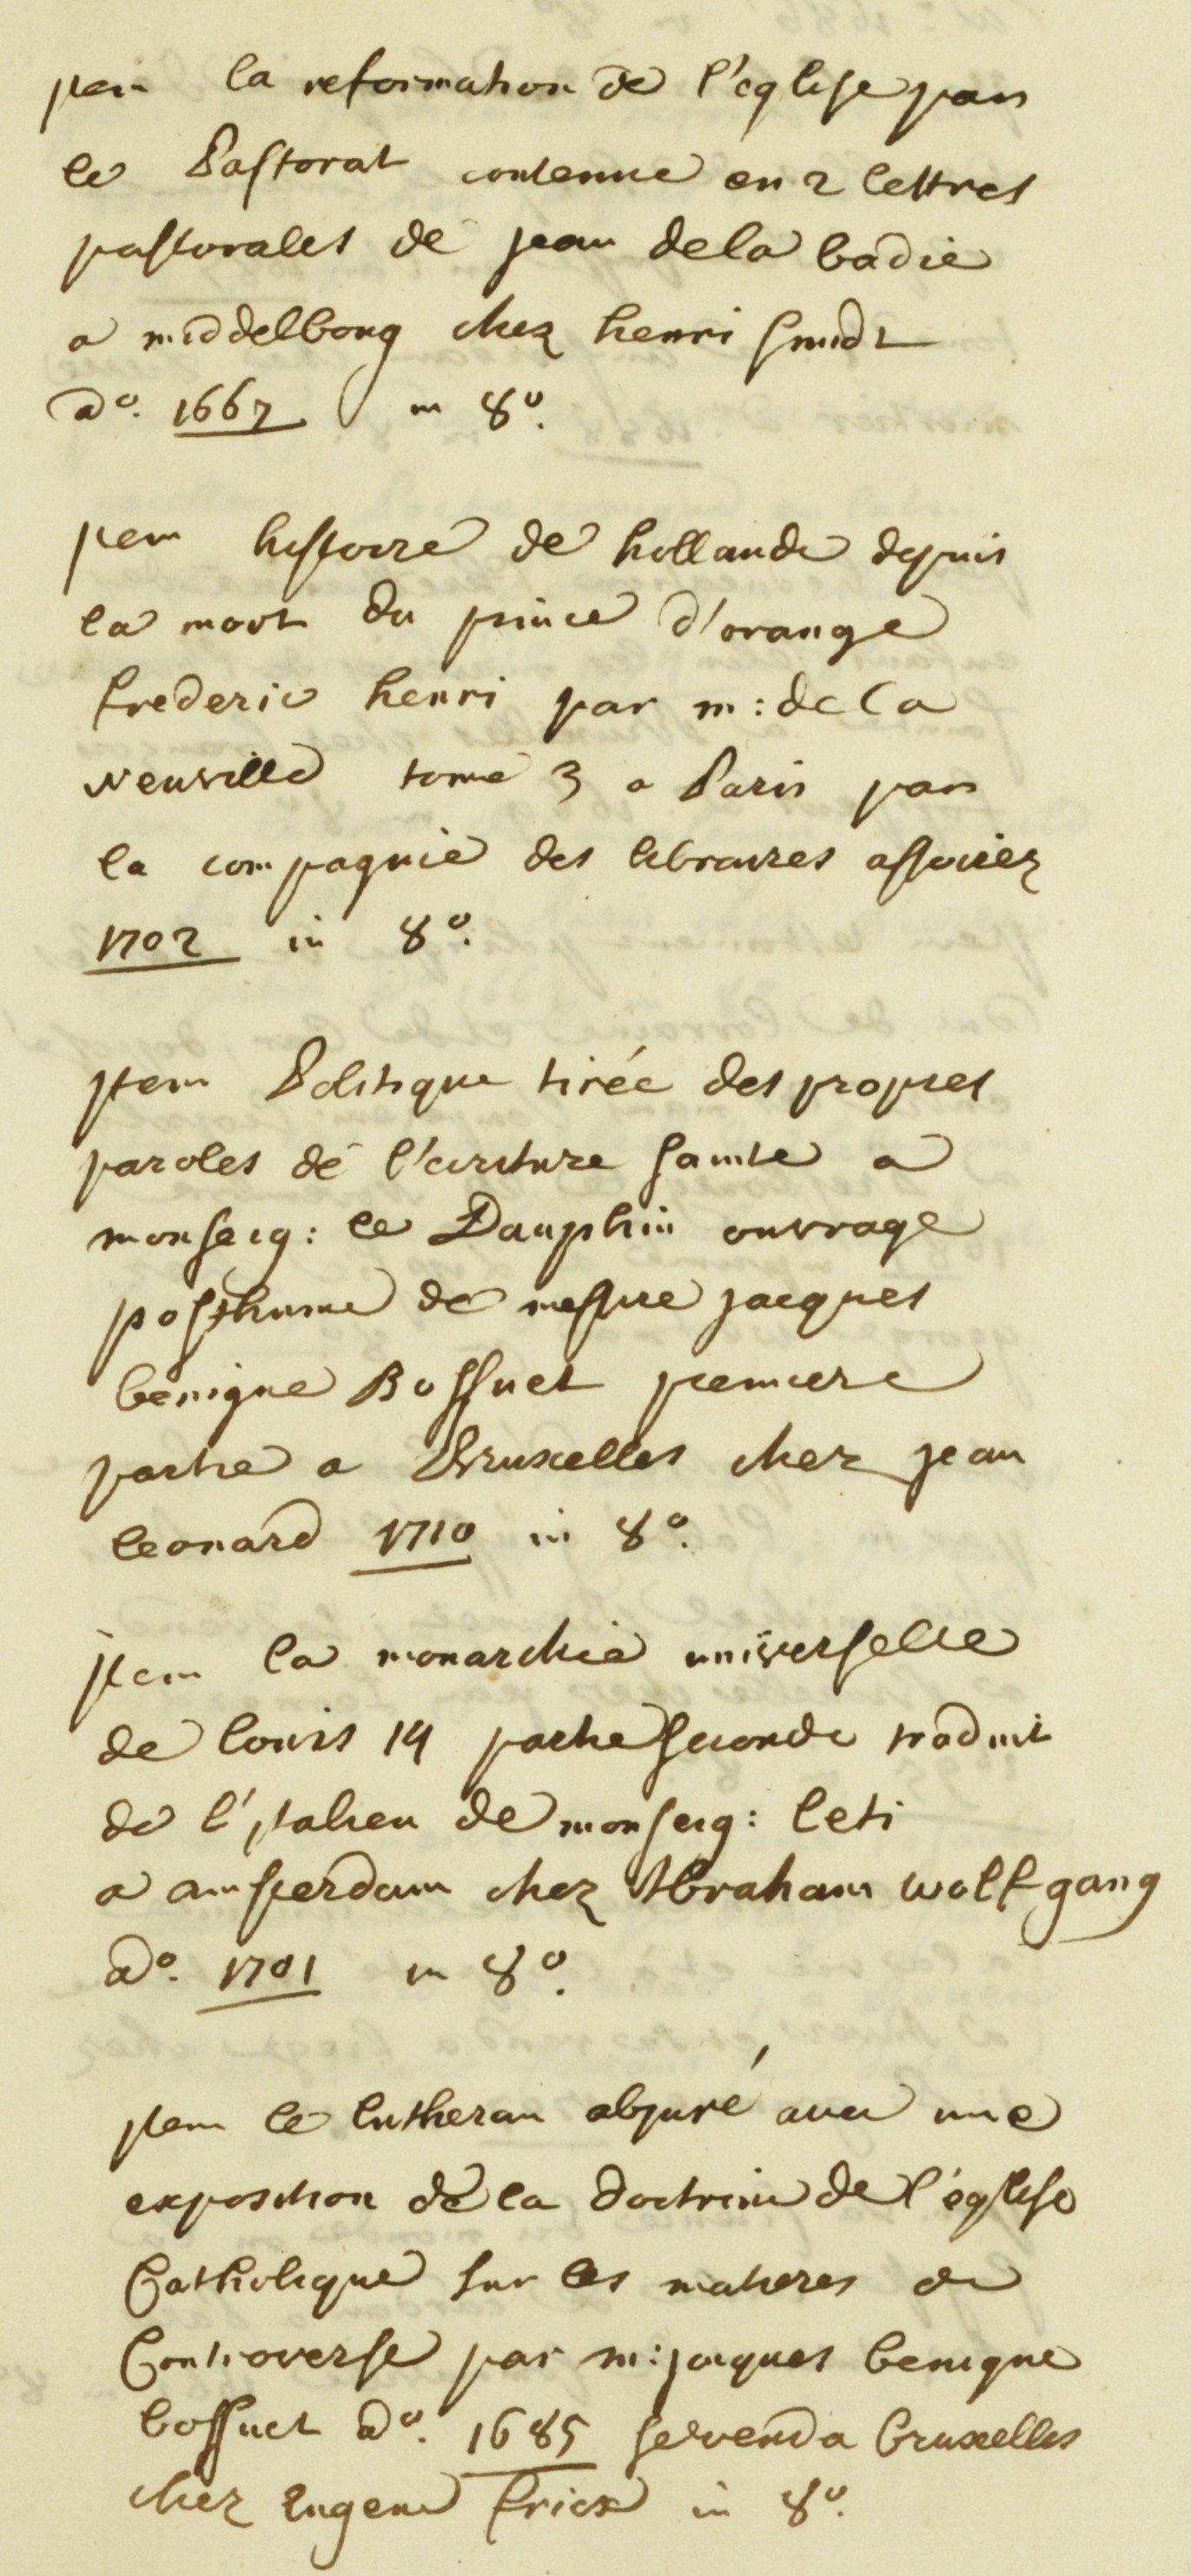 jtem la reformation de l'eglise par
le Pastorat contenue en 2 lettres
pastorales de jean dela badie
a middelbong chez henri smidt
ao. 1667 in 8o.
jtem histoire de hollande depuis
la mort du prince d'orange
frederic henri par m: de la
Neuville tome 3 a Paris par
la compagnie des libraires associez
1702 in 8o.
jtem Politique tirée des propres
paroles de l'ecriture sainte a
monseig: le Dauphin ouvrage
posthume de messire jacques
benigne Bossuet premiere
partie a Bruxelles chez jean
leonard 1710 in 8o.
jtem la monarchie universelle
de louis 14 partie seconde traduit
de l'jtalien de monseig: leti
a amsterdam chez Abraham wolfgang
ao. 1701 in 8o.
jtem le lutheran abjuré avec une
exposition de la doctrine de l'église
Catholique sur les matieres de
Controverse par m: jacques benigne
bossuet ao. 1685 se vend a bruxelles
chez Eugene fricx in 8o.